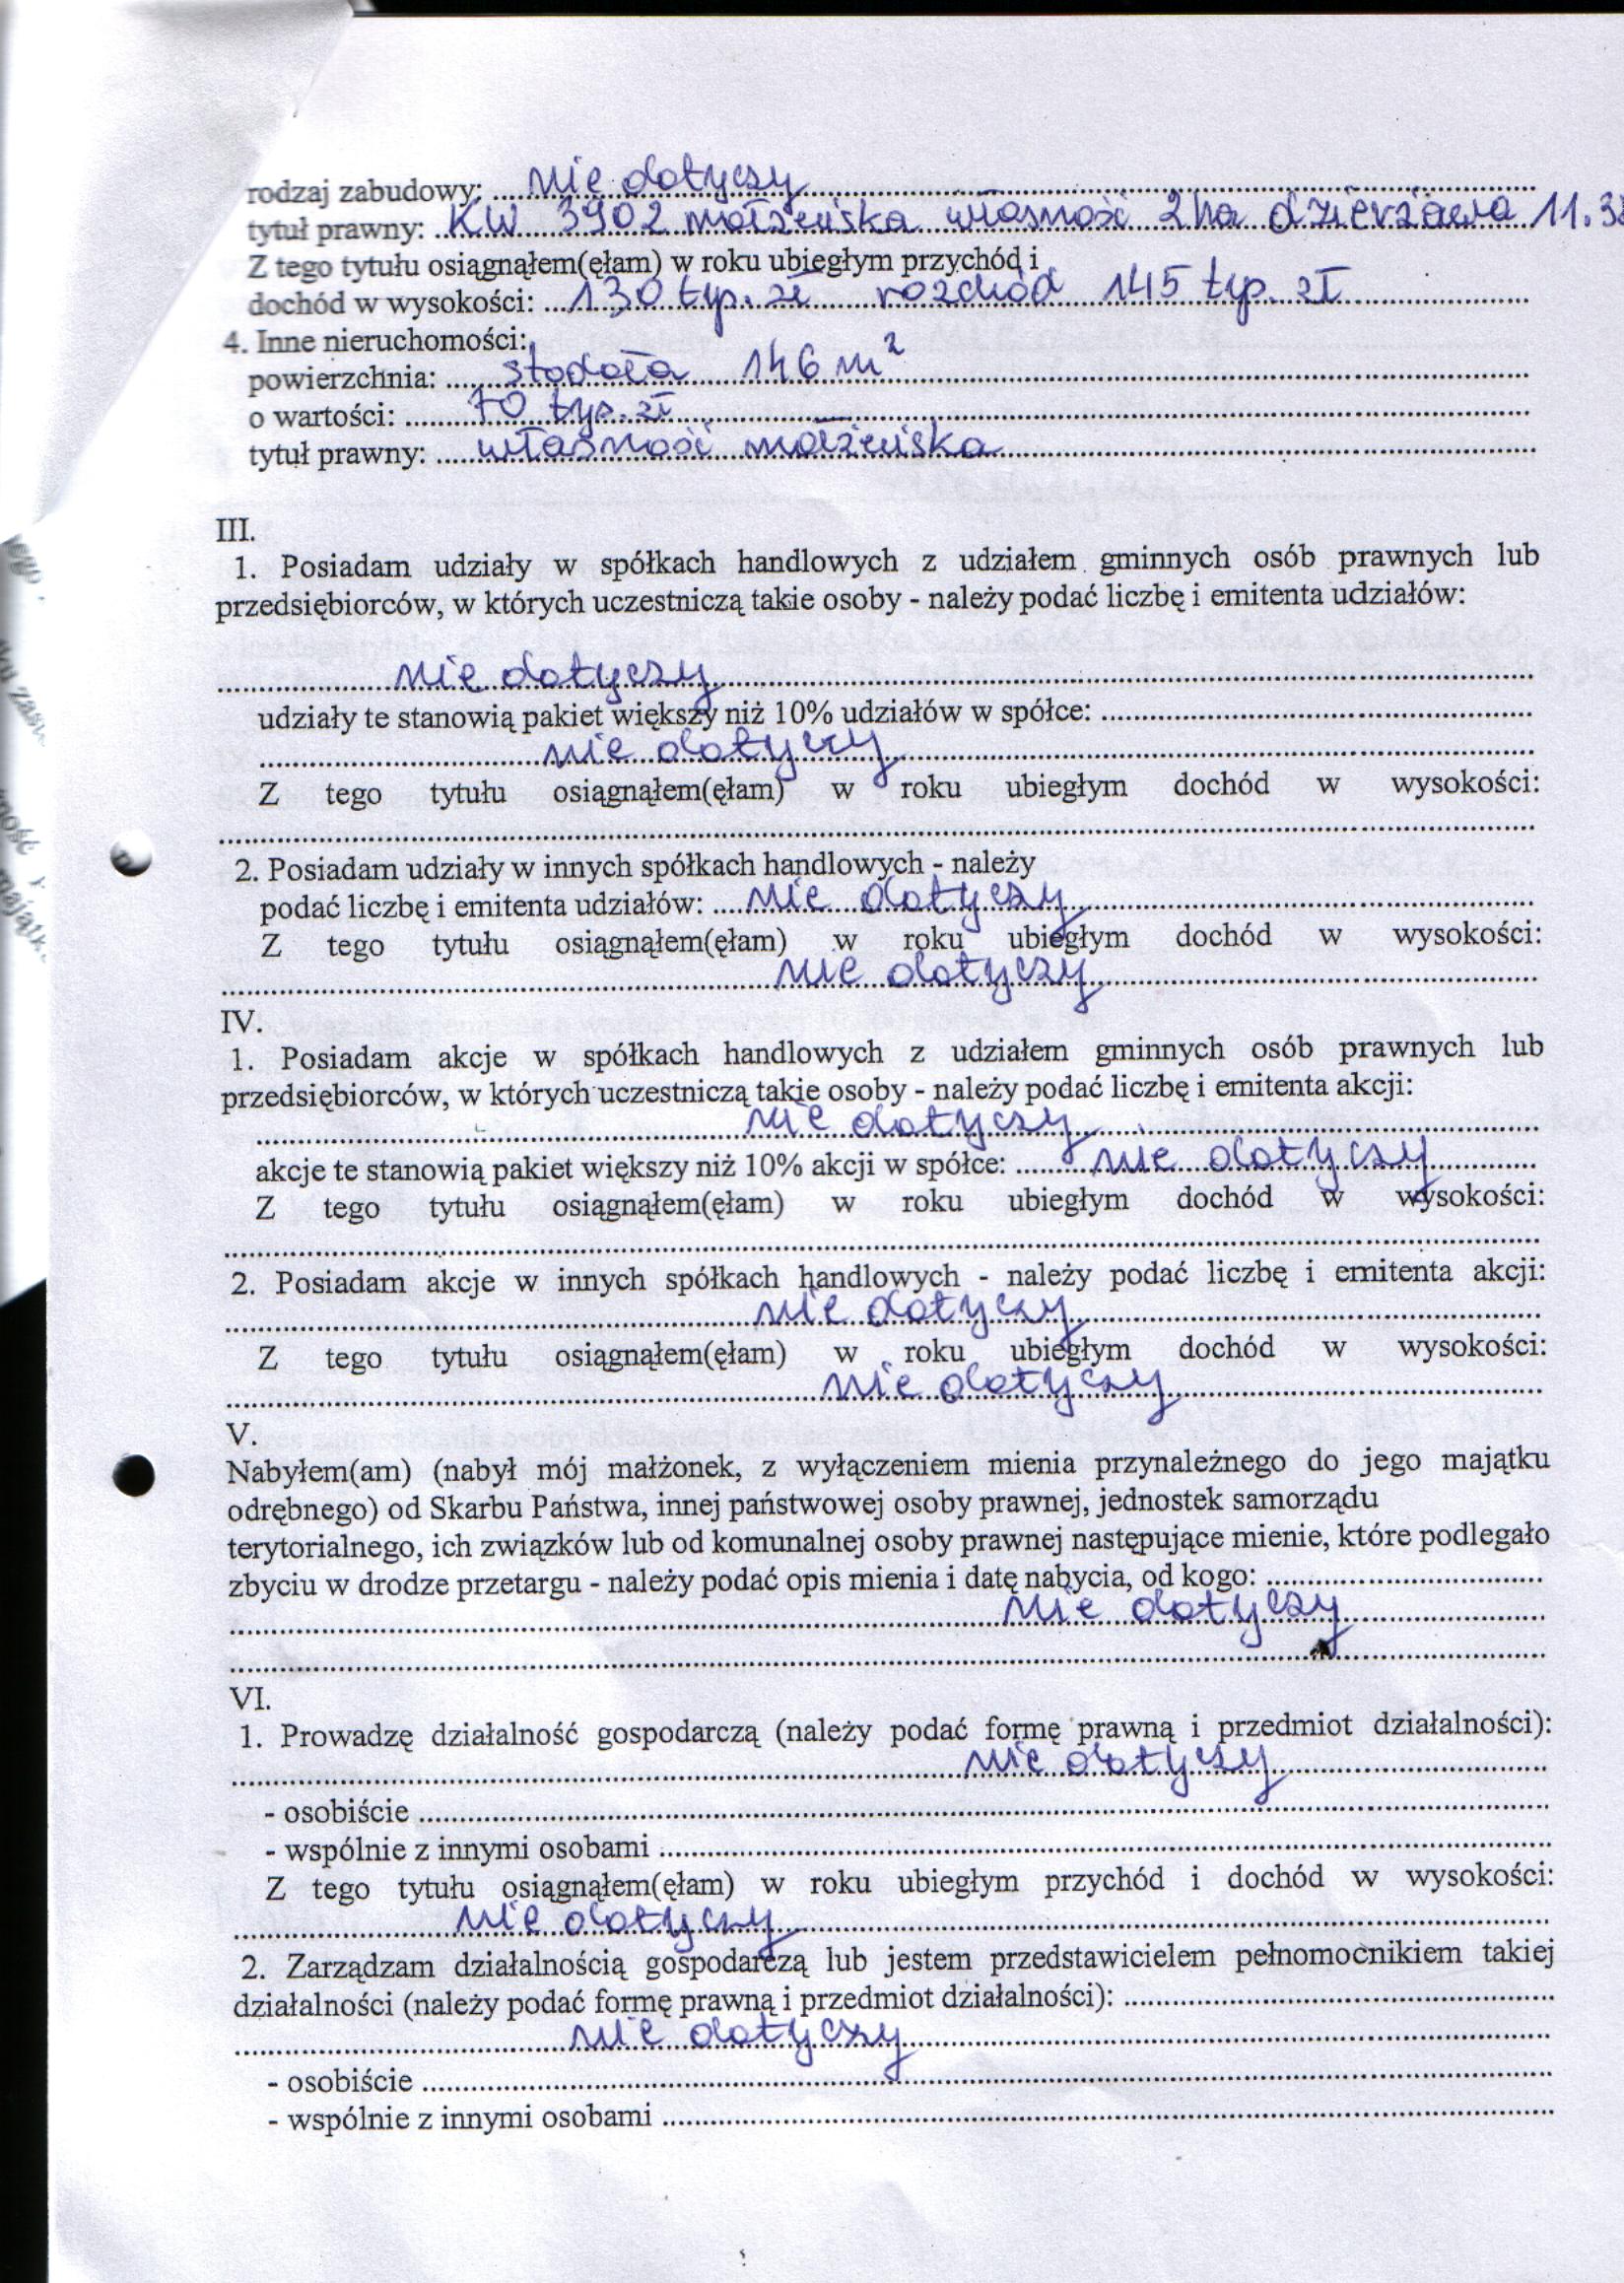 rodzaj zabudowy: nie dotyczy
tytuł prawny: KW 3902 małżeńska własność 2ha dzierżawa 11.38
Z tego tytułu osiągnąłem(ęłam) w roku ubiegłym przychód i
dochód w wysokości: 130 tys. zł rozchód 145 tys. zł
4. Inne nieruchomości:
powierzchnia: stodoła 146 m²
o wartości: 70 tys. zł
tytuł prawny: własność małżeńska
III.
1. Posiadam udziały w spółkach handlowych z udziałem gminnych osób prawnych lub
przedsiębiorców, w których uczestniczą takie osoby - należy podać liczbę i emitenta udziałów:
nie dotyczy
udziały te stanowią pakiet większy niż 10% udziałów w spółce:
nie dotyczy
Z tego tytułu osiągnąłem(ęłam) w roku ubiegłym dochód w wysokości:
2. Posiadam udziały w innych spółkach handlowych - należy
podać liczbę i emitenta udziałów: nie dotyczy
Z tego tytułu osiągnąłem(ęłam) w roku ubiegłym dochód w wysokości:
nie dotyczy
IV.
1. Posiadam akcje w spółkach handlowych z udziałem gminnych osób prawnych lub
przedsiębiorców, w których uczestniczą takie osoby - należy podać liczbę i emitenta akcji:
nie dotyczy
akcje te stanowią pakiet większy niż 10% akcji w spółce: nie dotyczy
Z tego tytułu osiągnąłem(ęłam) w roku ubiegłym dochód w wysokości:
2. Posiadam akcje w innych spółkach handlowych - należy podać liczbę i emitenta akcji:
nie dotyczy
Z tego tytułu osiągnąłem(ęłam) w roku ubiegłym dochód w wysokości:
nie dotyczy
V.
Nabyłem(am) (nabył mój małżonek, z wyłączeniem mienia przynależnego do jego majątku
odrębnego) od Skarbu Państwa, innej państwowej osoby prawnej, jednostek samorządu
terytorialnego, ich związków lub od komunalnej osoby prawnej następujące mienie, które podlegało
zbyciu w drodze przetargu - należy podać opis mienia i datę nabycia, od kogo:
nie dotyczy
VI.
1. Prowadzę działalność gospodarczą (należy podać formę prawną i przedmiot działalności):
nie dotyczy
- osobiście
- wspólnie z innymi osobami
Z tego tytułu osiągnąłem(ęłam) w roku ubiegłym przychód i dochód w wysokości:
nie dotyczy
2. Zarządzam działalnością gospodarczą lub jestem przedstawicielem pełnomocnikiem takiej
działalności (należy podać formę prawną i przedmiot działalności):
nie dotyczy
- osobiście
- wspólnie z innymi osobami